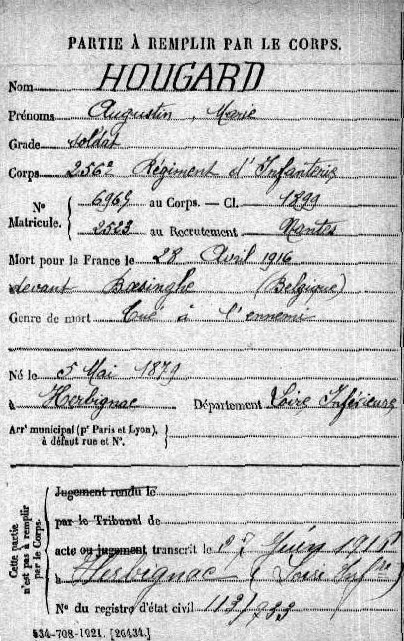 PARTIE À REMPLIR PAR LE CORPS.
Nom HOUGARD
Prénoms Augustin, Marie
Grade soldat
Corps 256e Régiment d'Infanterie
N° Matricule. { 6965 au Corps. — Cl. 1899
2523 au Recrutement Nantes
Mort pour la France le 28 Avril 1916
devant Boesinghe (Belgique)
Genre de mort Tué à l'ennemi
Né le 5 Mai 1879
à Herbignac Département Loire Inférieure
Arrt municipal (pr Paris et Lyon), à défaut rue et N°.
Cette partie n'est pas à remplir par le Corps.
Jugement rendu le
par le Tribunal de
acte ou jugement transcrit le 27 Juin
à Herbignac (Loire Infre)
N° du registre d'état civil 113/
534-708-1921. [26434.]